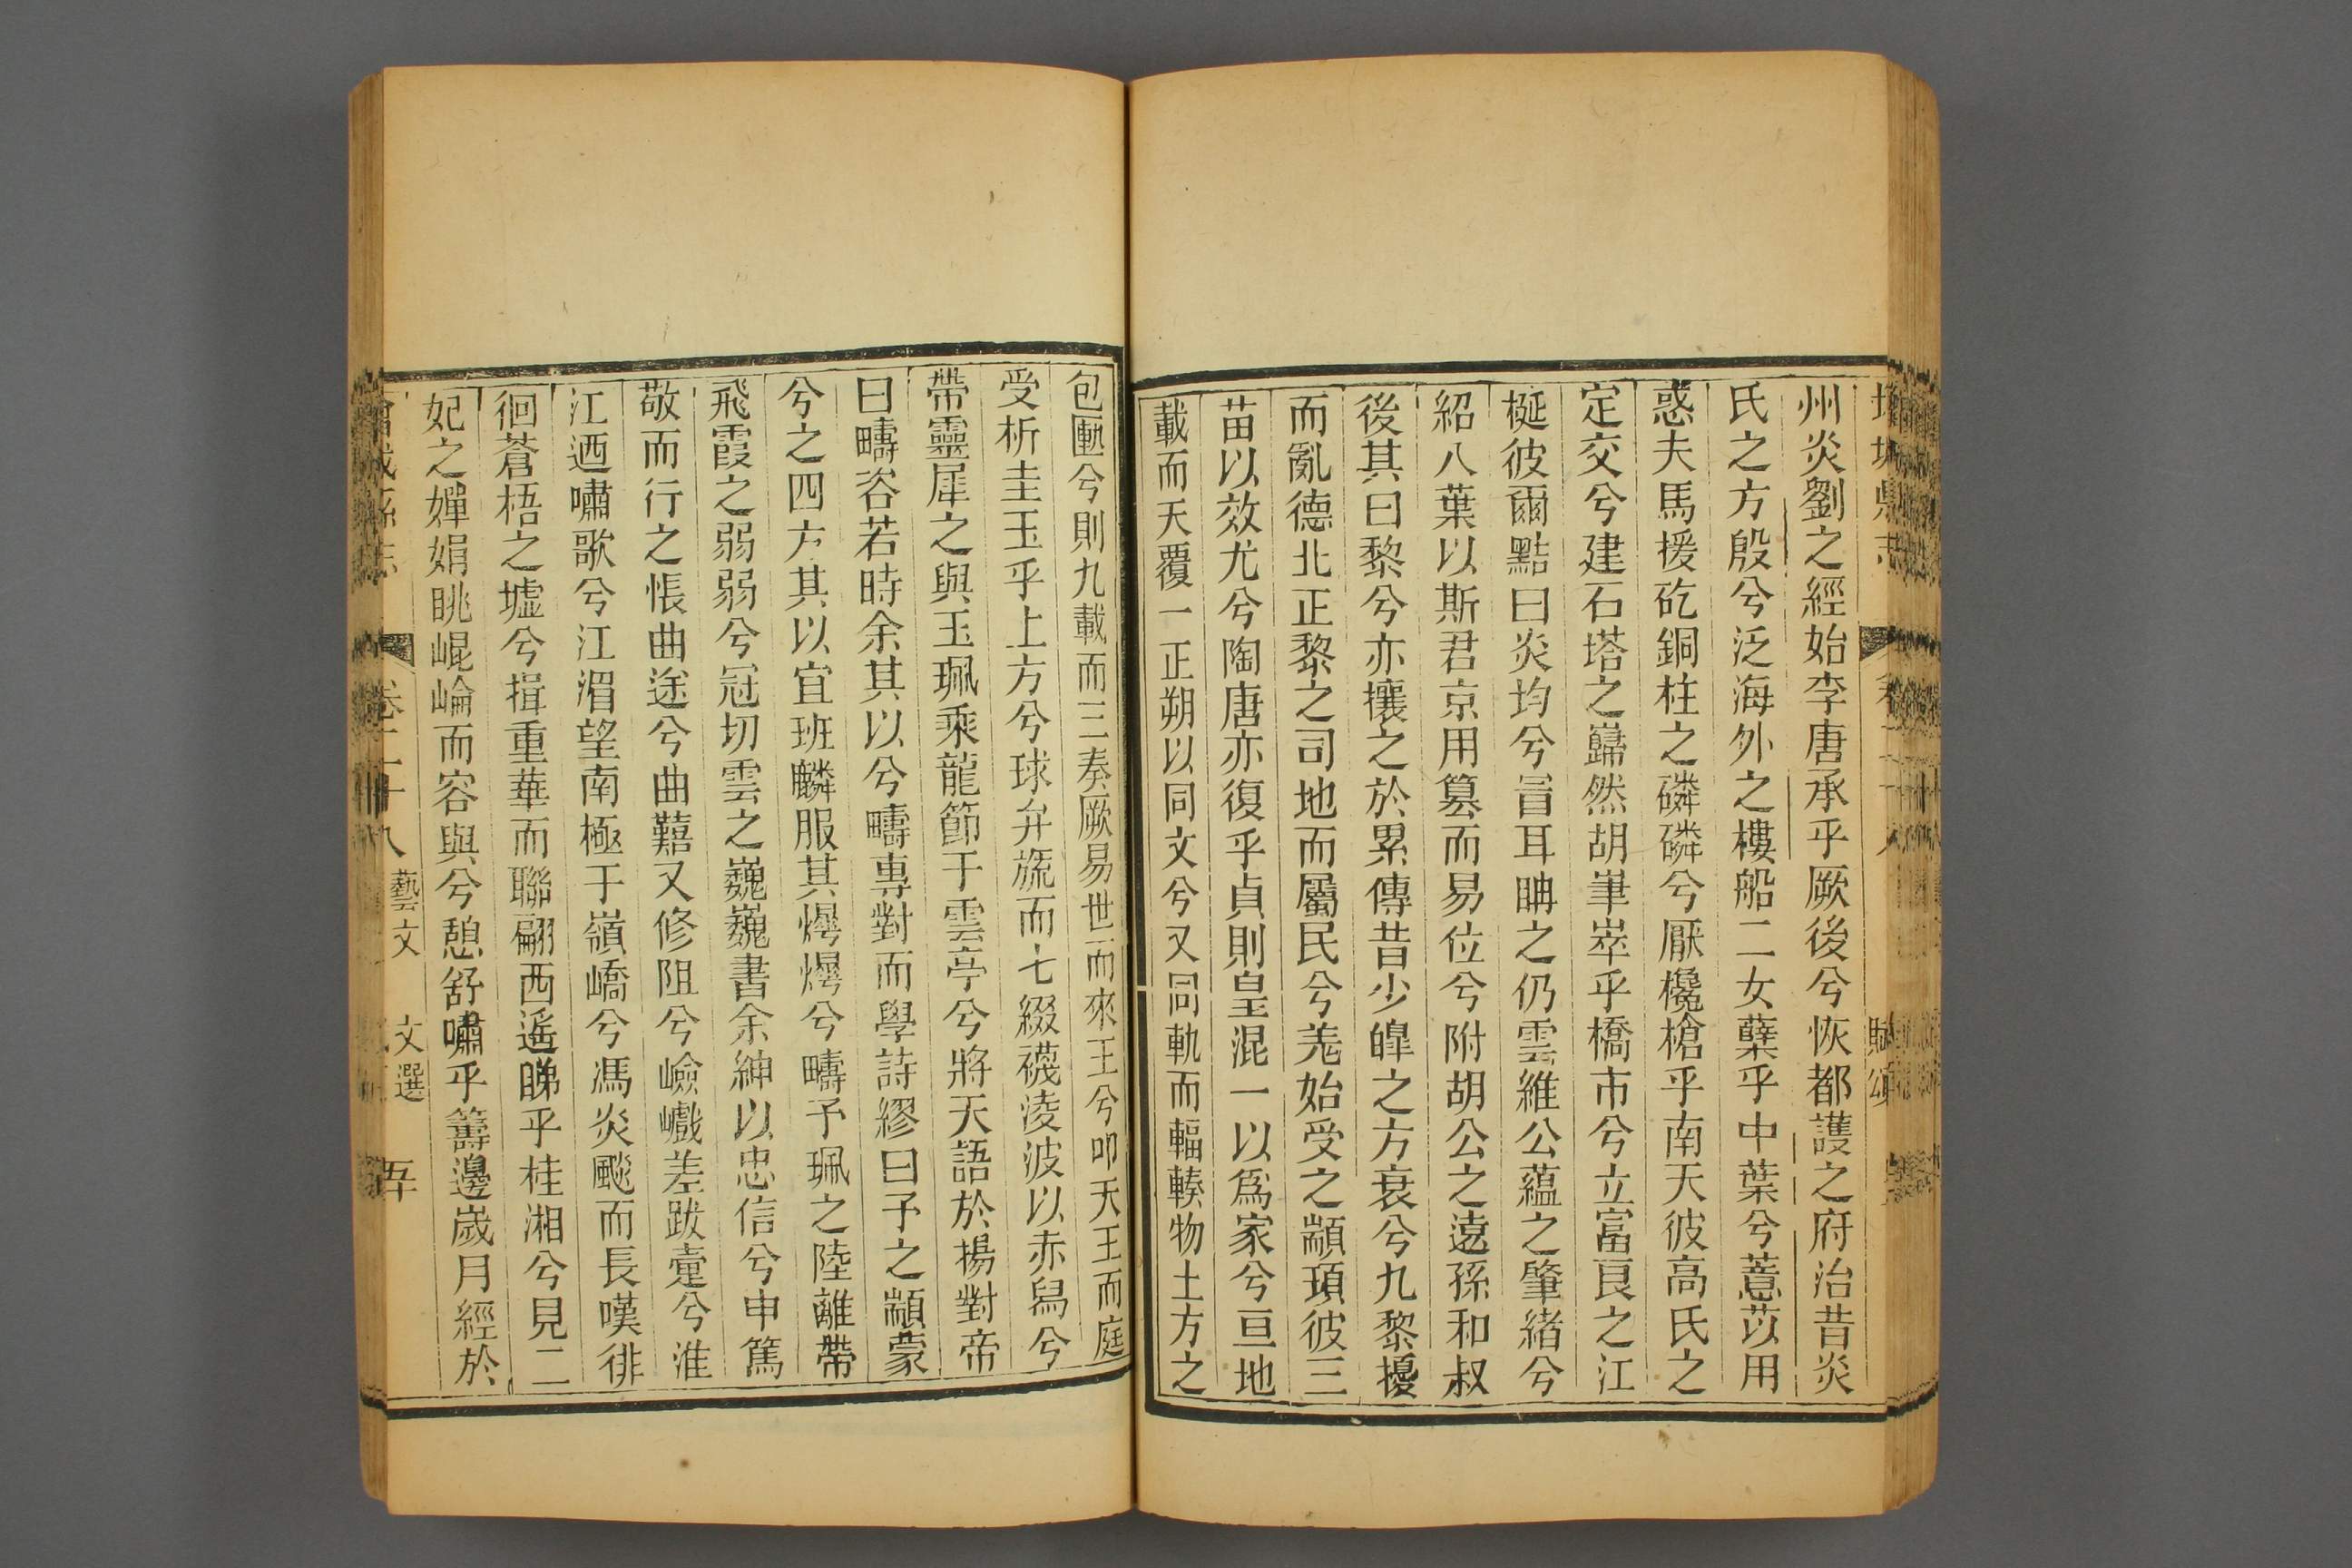 州炎劉之經始李唐承乎厥後兮恢都護之府治昔炎
氏之方殷兮泛海外之樓船二女孽乎中葉兮薏苡用
惑夫馬援矻銅柱之磷磷兮厭欃槍乎南天彼高氏之
定交兮建石塔之巋然胡峍崒乎橋市兮立富良之江
梴彼爾點曰炎均兮冒耳聃之仍雲維公蘊之肇緒兮
紹八葉以斯君京用篡而易位兮附胡公之遠孫和叔
後其曰黎兮亦攘之於累傳昔少皞之方衰兮九黎擾
而亂德北正黎之司地而屬民兮羌始受之顓頊彼三
苗以效尤兮陶唐亦復乎貞則皇混一以爲家兮亘地
載而天覆一正朔以同文兮又同軌而輻輳物土方之
包匭兮則九載而三奏厥易世而來王兮叩天王而庭
受析圭玉乎上方兮球弁旒而七綴襪淩波以赤舄兮
帶靈犀之與玉珮乘龍節于雲亭兮將天語於揚對帝
曰疇咨若時余其以兮疇專對而學詩繆曰予之顓蒙
兮之四方其以宜班麟服其燡燡兮疇予珮之陸離帶
飛霞之弱弱兮冠切雲之巍巍書余紳以忠信兮申篤
敬而行之悵曲途兮曲囏又修阻兮嶮巇差跋疐兮淮
江迺嘯歌兮江湄望南極于嶺嶠兮馮炎颷而長嘆徘
徊蒼梧之墟兮揖重華而聯翩西遙睇乎桂湘兮見二
妃之嬋娟眺崐崘而容與兮憩舒嘯乎籌邊嵗月經於
卷二十八 藝文 文選 五十